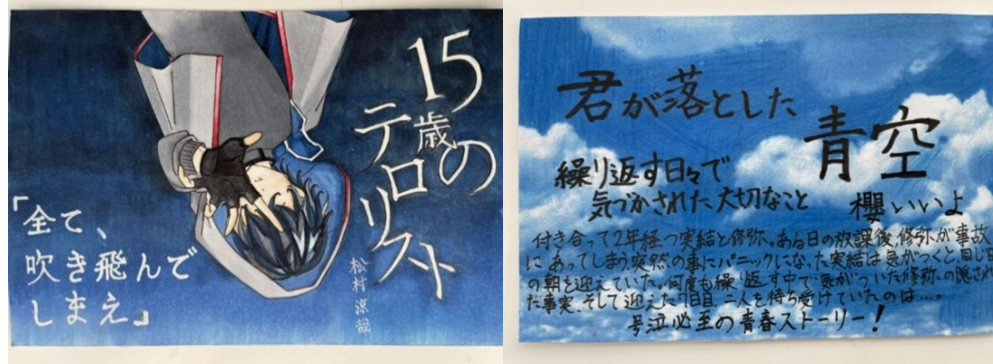 15歳の
テロリスト
松村涼哉
「全て、
吹き飛んで
しまえ」
君が落とした
青空
繰り返す日々で
気づかされた大切なこと
櫻いいよ
付き合って2年経つ実結と修弥。ある日の放課後、修弥が事故
にあってしまう。突然の事にパニックになった実結は気がつくと、同じ日
の朝を迎えていた。何度も繰り返す中で気がついた修弥の隠され
た事実。そして迎えた7日目、二人を待ち受けていたのは…。
号泣必至の青春ストーリー!